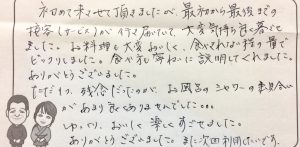 初めて来させて頂きましたが、最初から最後まで
接客(サービス)が行き届いていて、大変気持ち良く過ごせ
ました。お料理も大変おいしく、食べきれない程の量で
ビックリしました。食べ方も丁ねいに説明してくれました。
ありがとうございました。
ただ1つ、残念だったのが、お風呂のシャワーの具合い
があまり良くありませんでした…。
ゆっくり、おいしく楽しくすごせました。
ありがとうございました。また次回利用したいです。